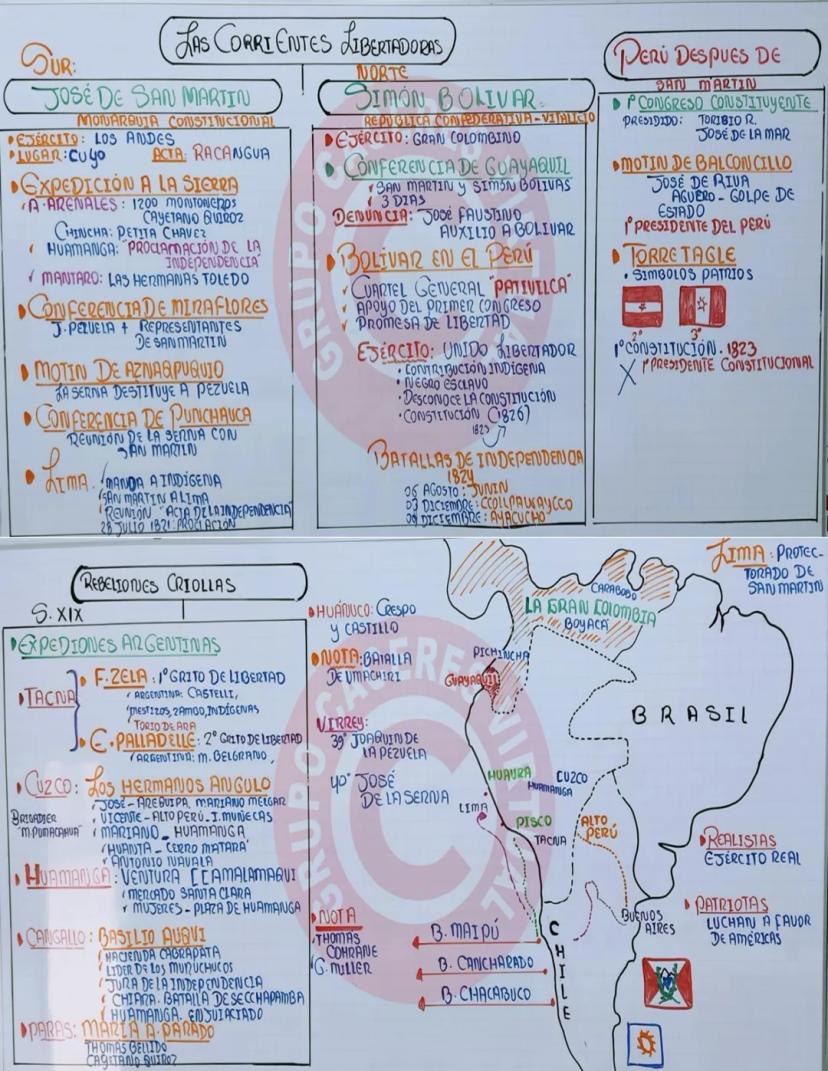 LAS CORRIENTES LIBERTADORAS
SUR:
JOSÉ DE SAN MARTIN
MONARQUIA CONSTITUCIONAL
EJÉRCITO: LOS ANDES
LUGAR: CUYO ACTA: RACANGUA
EXPEDICIÓN A LA SIERRA
A. ARENALES: 1200 MONTONEROS
CAYETANO QUIROZ
CHINCHA: PETITA CHAVEZ
HUAMANGA: "PROCLAMACIÓN DE LA
INDEPENDENCIA"
MANTARO: LAS HERMANAS TOLEDO
CONFERENCIA DE MIRAFLORES
J. PEZUELA + REPRESENTANTES
DE SAN MARTIN
MOTIN DE AZNAPUQUIO
LA SERNA DESTITUYE A PEZUELA
CONFERENCIA DE PUNCHAUCA
REUNIÓN DE LA SERNA CON
SAN MARTIN
LIMA: MANDA A INDÍGENA
SAN MARTIN A LIMA
REUNIÓN "ACTA DE LA INDEPENDENCIA"
28 JULIO 1821: PROCLACIÓN
NORTE
SIMÓN BOLIVAR
REPÚBLICA CONFEDERATIVA - VITALICIO
EJÉRCITO: GRAN COLOMBINO
CONFERENCIA DE GUAYAQUIL
SAN MARTIN Y SIMÓN BOLIVAS
3 DIAS
DENUNCIA: JOSÉ FAUSTINO
AUXILIO A BOLIVAR
BOLIVAR EN EL PERÚ
CUARTEL GENERAL "PATIVILCA"
APOYO DEL PRIMER CONGRESO
PROMESA DE LIBERTAD
EJÉRCITO: UNIDO LIBERTADOR
CONTRIBUCIÓN INDÍGENA
NEGRO ESCLAVO
DESCONOCE LA CONSTITUCIÓN
CONSTITUCIÓN (1826)
1823
BATALLAS DE INDEPENDENCIA
1824
06 AGOSTO: JUNIN
03 DICIEMBRE: CCOLPAHUAYCCO
09 DICIEMBRE: AYACUCHO
PERÚ DESPUES DE
SAN MARTIN
1º CONGRESO CONSTITUYENTE
PRESIDIDO: TORIBIO R.
JOSÉ DE LA MAR
MOTIN DE BALCONCILLO
JOSÉ DE RIVA
AGUERO - GOLPE DE
ESTADO
1º PRESIDENTE DEL PERÚ
TORRE TAGLE
SIMBOLOS PATRIOS
2º 3º
1º CONSTITUCIÓN. 1823
X 1º PRESIDENTE CONSTITUCIONAL
REBELIONES CRIOLLAS
S. XIX
EXPEDIONES ARGENTINAS
TACNA
F. ZELA: 1º GRITO DE LIBERTAD
ARGENTINA: CASTELLI,
MESTIZOS, ZAMBO, INDÍGENAS
TORIO DE ARA
E. PALLADELLE: 2º GRITO DE LIBERTAD
ARGENTINA: M. BELGRANO,
CUZCO: LOS HERMANOS ANGULO
BRIGADIER
"M. PUMACAHUA"
JOSÉ - AREQUIPA, MARIANO MELGAR
VICENTE - ALTO PERÚ - I. MUÑECAS
MARIANO - HUAMANGA
HUANTA - CERRO MATARÁ
ANTONIO NAVALA
HUAMANGA: VENTURA CCAMALAMAQUI
MERCADO SANTA CLARA
MUJERES - PLAZA DE HUAMANGA
CANGALLO: BASILIO AUQUI
HACIENDA CABRAPATA
LIDER DE LOS MURUCHUCOS
JURA DE LA INDEPENDENCIA
CHIARA. BATALLA DE SECCHAPAMBA
HUAMANGA. ENJUIACIADO
PARAS: MARIA A. PARADO
THOMAS BELLIDO
CAYETANO QUIROZ
HUÁNUCO: CRESPO
Y CASTILLO
NOTA: BATALLA
DE UMACHIRI
VIRREY:
39º JOAQUIN DE
LA PEZUELA
40º JOSÉ
DE LA SERNA
NOTA
THOMAS
COHRANE
G. MILLER
LIMA: PROTEC-
TORADO DE
SAN MARTIN
CARABOBO
LA GRAN COLOMBIA
BOYACÁ
PICHINCHA
GUAYAQUIL
BRASIL
HUAURA
CUZCO
HUAMANGA
LIMA
PISCO
TACNA
ALTO
PERÚ
BUENOS
AIRES
CHILE
B. MAIPÚ
B. CANCHARADO
B. CHACABUCO
REALISTAS
EJÉRCITO REAL
PATRIOTAS
LUCHAN A FAVOR
DE AMÉRICAS
GRUPO CACERES VIRTUAL
GRUPO CACERES VIRTUAL